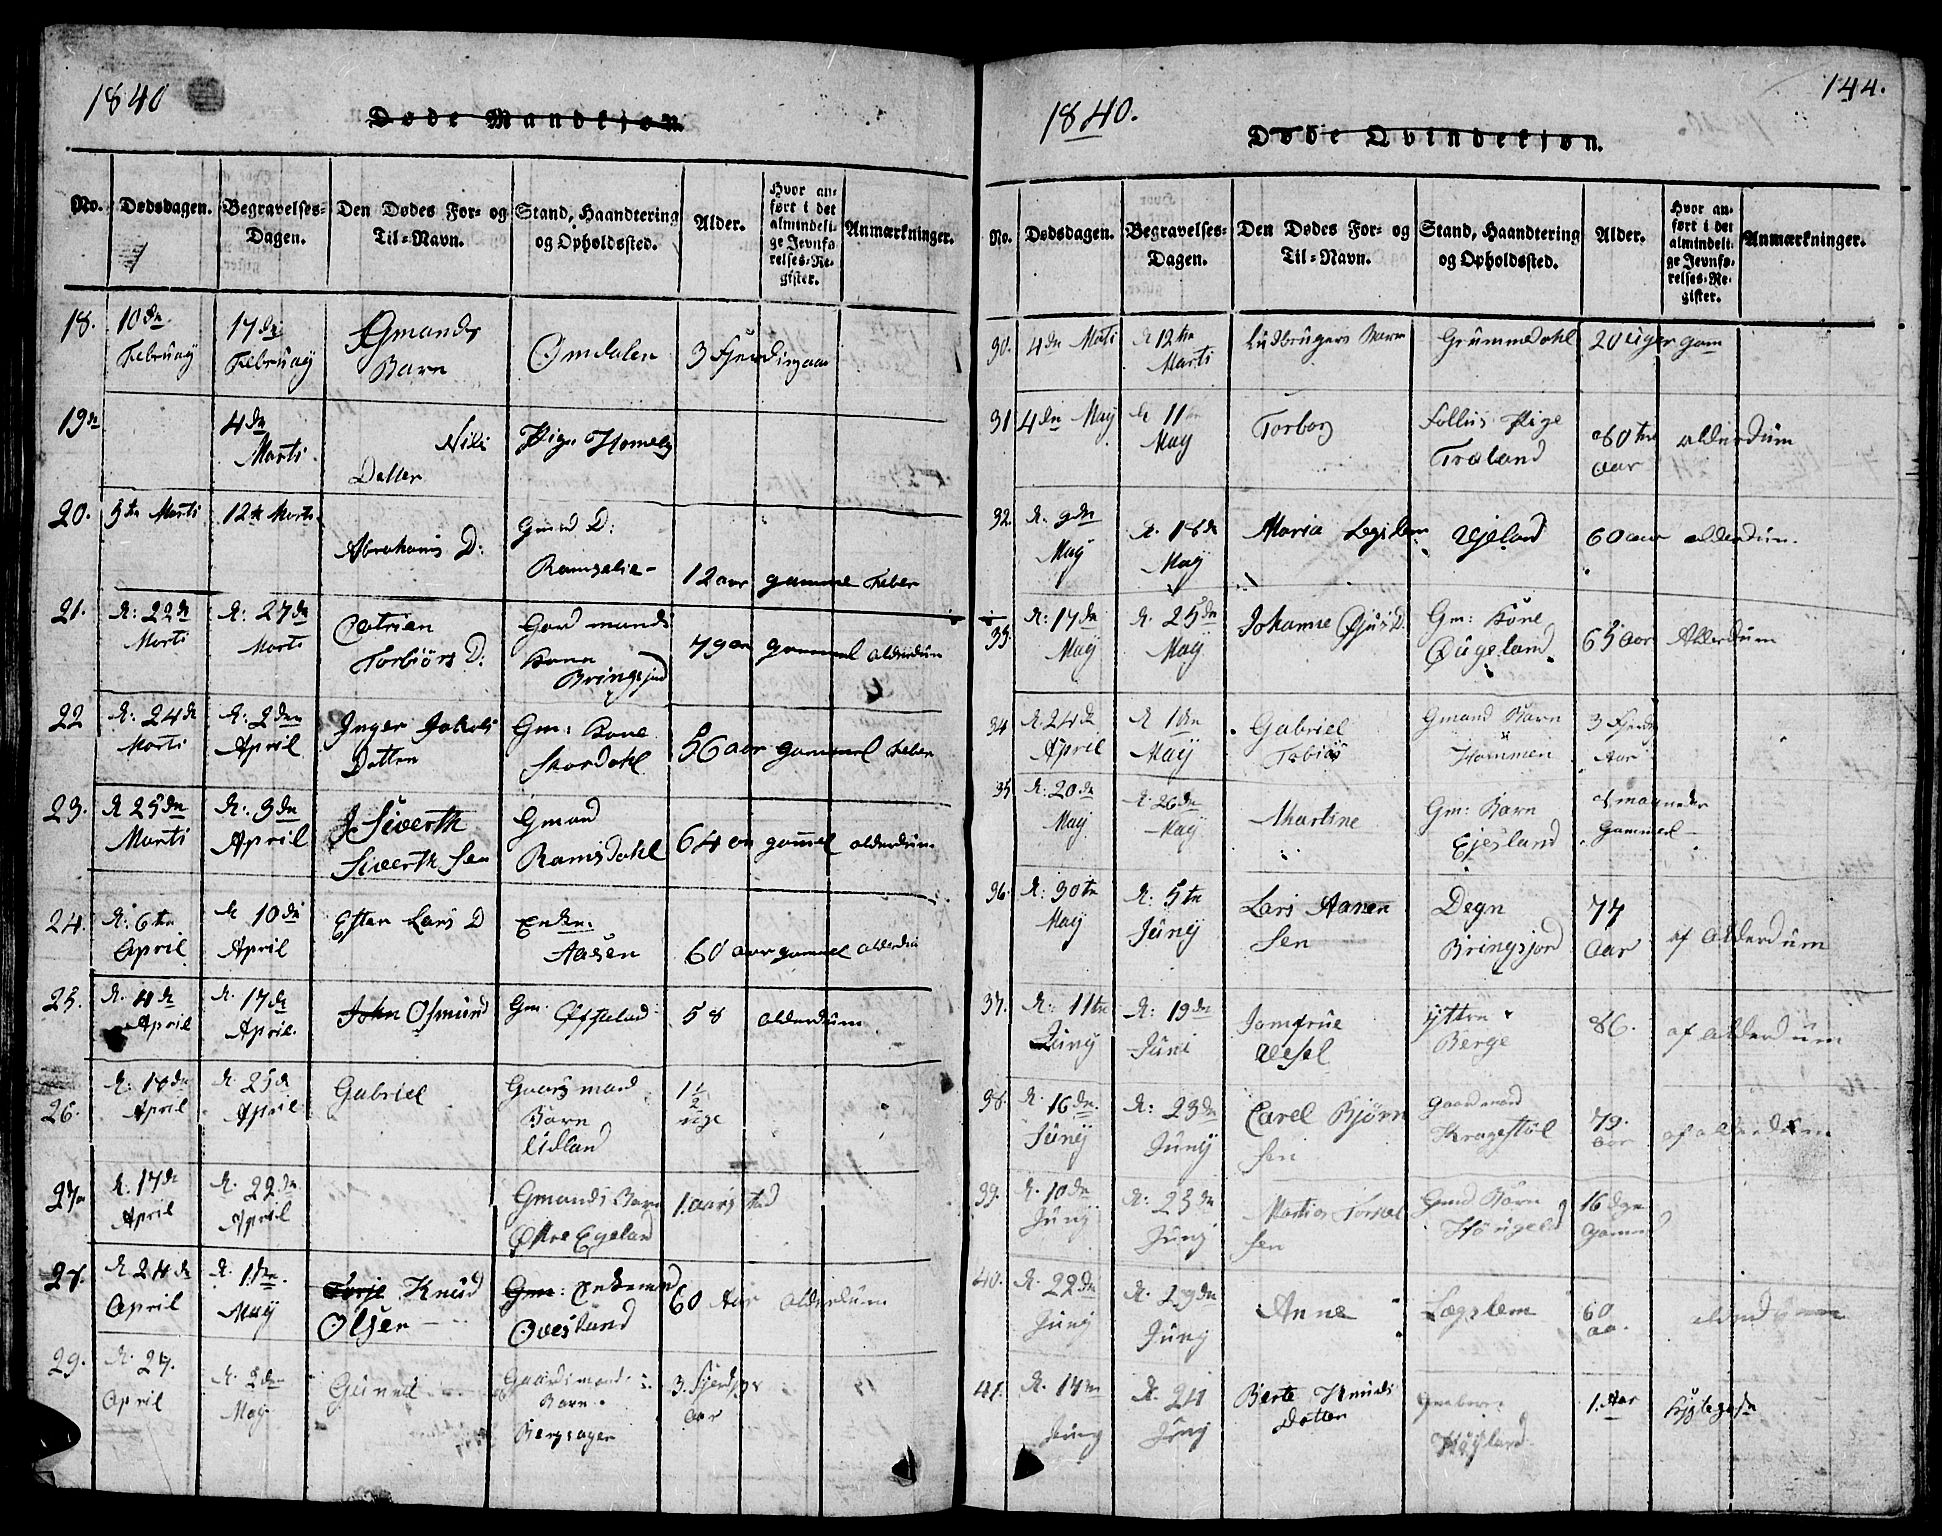 1840
Døde Mandkjøn.
No. Dødsdagen. Begravelses-Dagen. Den Dødes For- og Til-Navn. Stand, Haandtering og Opholdssted. Alder. Hvor anført i det almindelige Jevnførelses-Register. Anmærkninger.
18. 10de Februay 17de Februay Gmands Barn Omdalen 3 Fjerdingaar
19de 4de Marti Nils Datter Pige Homelg
20. 5te Marti 12te Marti Abrahams D: Gmd D: Ramselie 12 aar gamme Feber
21. d: 22de Marti d: 27de Marti Catrien Torbiørs D: Gard mands Kone Bringsjord 79 aar gammel alderdum
22 d: 24de Marti d: 2den April Inger Jakobs Datter Gm: Kone Skordahl 56 aar gammel Feber
23. d 25de Marti d: 3de April Siverth Siverth Sen Gmand Ramsdahl 64 aar gammel alderdum
24. d: 6te April d 10de April Ester Lars D Enke. Aasen 60 aar gammel alderdu
25. d. 11de April d. 17de April. John Osmund Gm: Øistelad 58 alderdum
26. d: 18de April d. 25de April Gabriel Gaars mand Barn Lidland 1 1/2 uge
27. d. 17de April d. 22de April Gmands Barn Østre Egeland 1. aars
27. d. 24de April d. 1ste May Terje Knud Olsen Gm: Enkemand Øvesland 60 Aar alderdum
29. d. 27. April d. 2den May Gunild Gaardsmand Barn. Bergsager 3. Fjerdings aar
1840.
144.
Døde Qvindekjøn.
No. Dødsdagen. Begravelses-Dagen. Den Dødes For- og Til-Navn. Stand, Haandtering og Opholdssted. Alder. Hvor anført i det almindelige Jevnførelses-Register. Anmærkninger.
30. 4de Marti d 12te Marti Ludbrugers Barn Grummedahl 20 uger gam
31 4de May d 11te May Torbor Follus Pige Traland 80 tne aar alderdum
32. d. 9de May d. 18de May Maria Legslem Ujeland 60 aar alderdum.
33. d: 17de May d. 25de May Johanne Gjus D. Gm: Kone Øugeland 65 aar Alderdum
34 d. 24de April d 1ste May Gabriel Tobias Gmand Barn Hommen 3 Fjerding Aar
35 d: 20de May d. 26de May Martine Gm: Barn Ejesland 8 maaneder Gammel
36. d: 30te May d: 5te Juny Lars Aanen Sen Degn Bringsjord 77 Aar af Alderdum
37. d: 11te Juny d: 19de Juni Jomfrue Wesel Yttre Berge 86. af alderdum
38. d. 16de. Juny d: 23de Juny Carel Bjørn Sen Gaardmand Kragestøl 79. aar af alderdum
39. d. 10de Juny d: 23de Juny Mathias Torkel Sen Gmd Barn Høugeld 16 dage Gamm
40. d. 22de Juny d. 29de Juny Anne Lægslem 60 aa. alderdum
41. d. 17de Juny d. 24 Juny Berte Knuds Datter Gm barn. Høyland 1. Aar